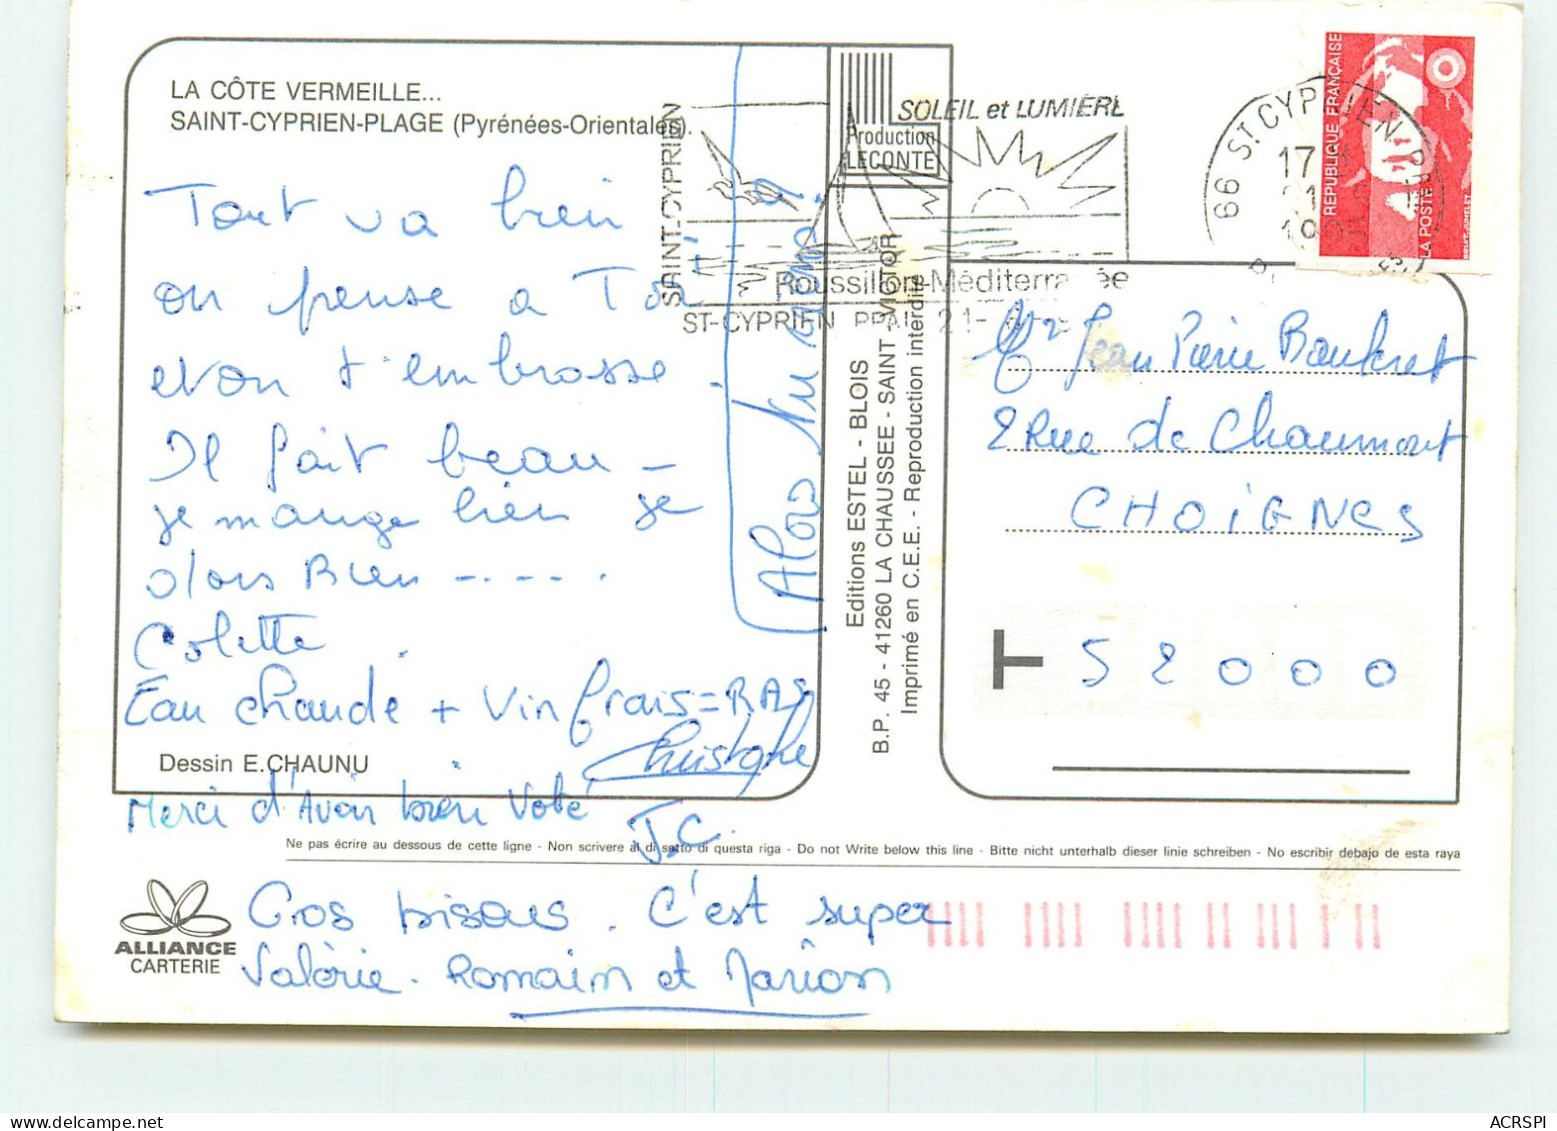 LA CÔTE VERMEILLE...
SAINT-CYPRIEN-PLAGE (Pyrénées-Orientales).
Tout va bien
on pense a Toi
et on t'embrasse.
Il fait beau -
je mange bien je
dors Bien -....
Colette.
Eau chaude + Vin frais = RAS
Christophe
Dessin E.CHAUNU
Merci d'Avoir bien Voté
J.C.
Alors Ni
Production
LECONTE
SAINT-CYPRIEN
SOLEIL et LUMIÈRE
Roussillon-Méditerranée
ST-CYPRIEN PPAL
66 ST CYPRIEN
17
REPUBLIQUE FRANÇAISE
LA POSTE
Editions ESTEL - BLOIS
B.P. 45 - 41260 LA CHAUSSEE - SAINT - VICTOR
Imprimé en C.E.E. - Reproduction interdite
Jean Pierre
2 Rue de Chaumont
CHOIGNES
T 52000
Ne pas écrire au dessous de cette ligne - Non scrivere al di sotto di questa riga - Do not Write below this line - Bitte nicht unterhalb dieser linie schreiben - No escribir debajo de esta raya
Gros bisous. C'est super
Valérie. Romain et Marion
ALLIANCE
CARTERIE
ACRSPI